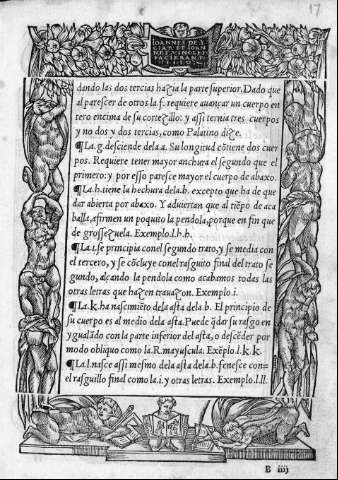 17
IOANNES DE Y
CIAR ET IOAN
NES VINGLES
FACIEBANT
dando las dos tercias hazia la parte superior. Dado que
al parescer de otros la.f. requiere auançar un cuerpo en
tero encima de su cortezillo: y assi ternia tres cuerpos
y no dos y dos tercias, como Palatino dize.
¶La.g. desciende dela.a. Su longitud cõtiene dos cuer
pos. Requiere tener mayor anchura el segundo que el
primero: y por esso paresce mayor el cuerpo de abaxo.
¶La.h. tiene la hechura dela.b. excepto que ha de que
dar abierta por abaxo. Y aduiertan que al tiẽpo de aca
balla, afirmen un poquito la pendola, porque en fin que
de grossezuela. Exemplo.l.h.h.
¶La.i. se principia conel segundo trato, y se media con
el tercero, y se cõcluye conel rasguito final del trato se
gundo, alçando la pendola como acabamos todas las
otras letras que hazen trauazon. Exemplo.i.
¶La.k. ha nascimiẽto dela asta dela.b. El principio de
su cuerpo es al medio dela asta. Puede q̃dar su rasgo en
ygualdão con la parte inferior del asta, o descẽder por
modo obliquo como la.R. mayuscula. Exẽplo.l.k.k.
¶La.l. nasce assi mesmo dela asta dela.b. fenesce con=
el rasguillo final como la.i. y otras letras. Exemplo.l.ll.
B iiij